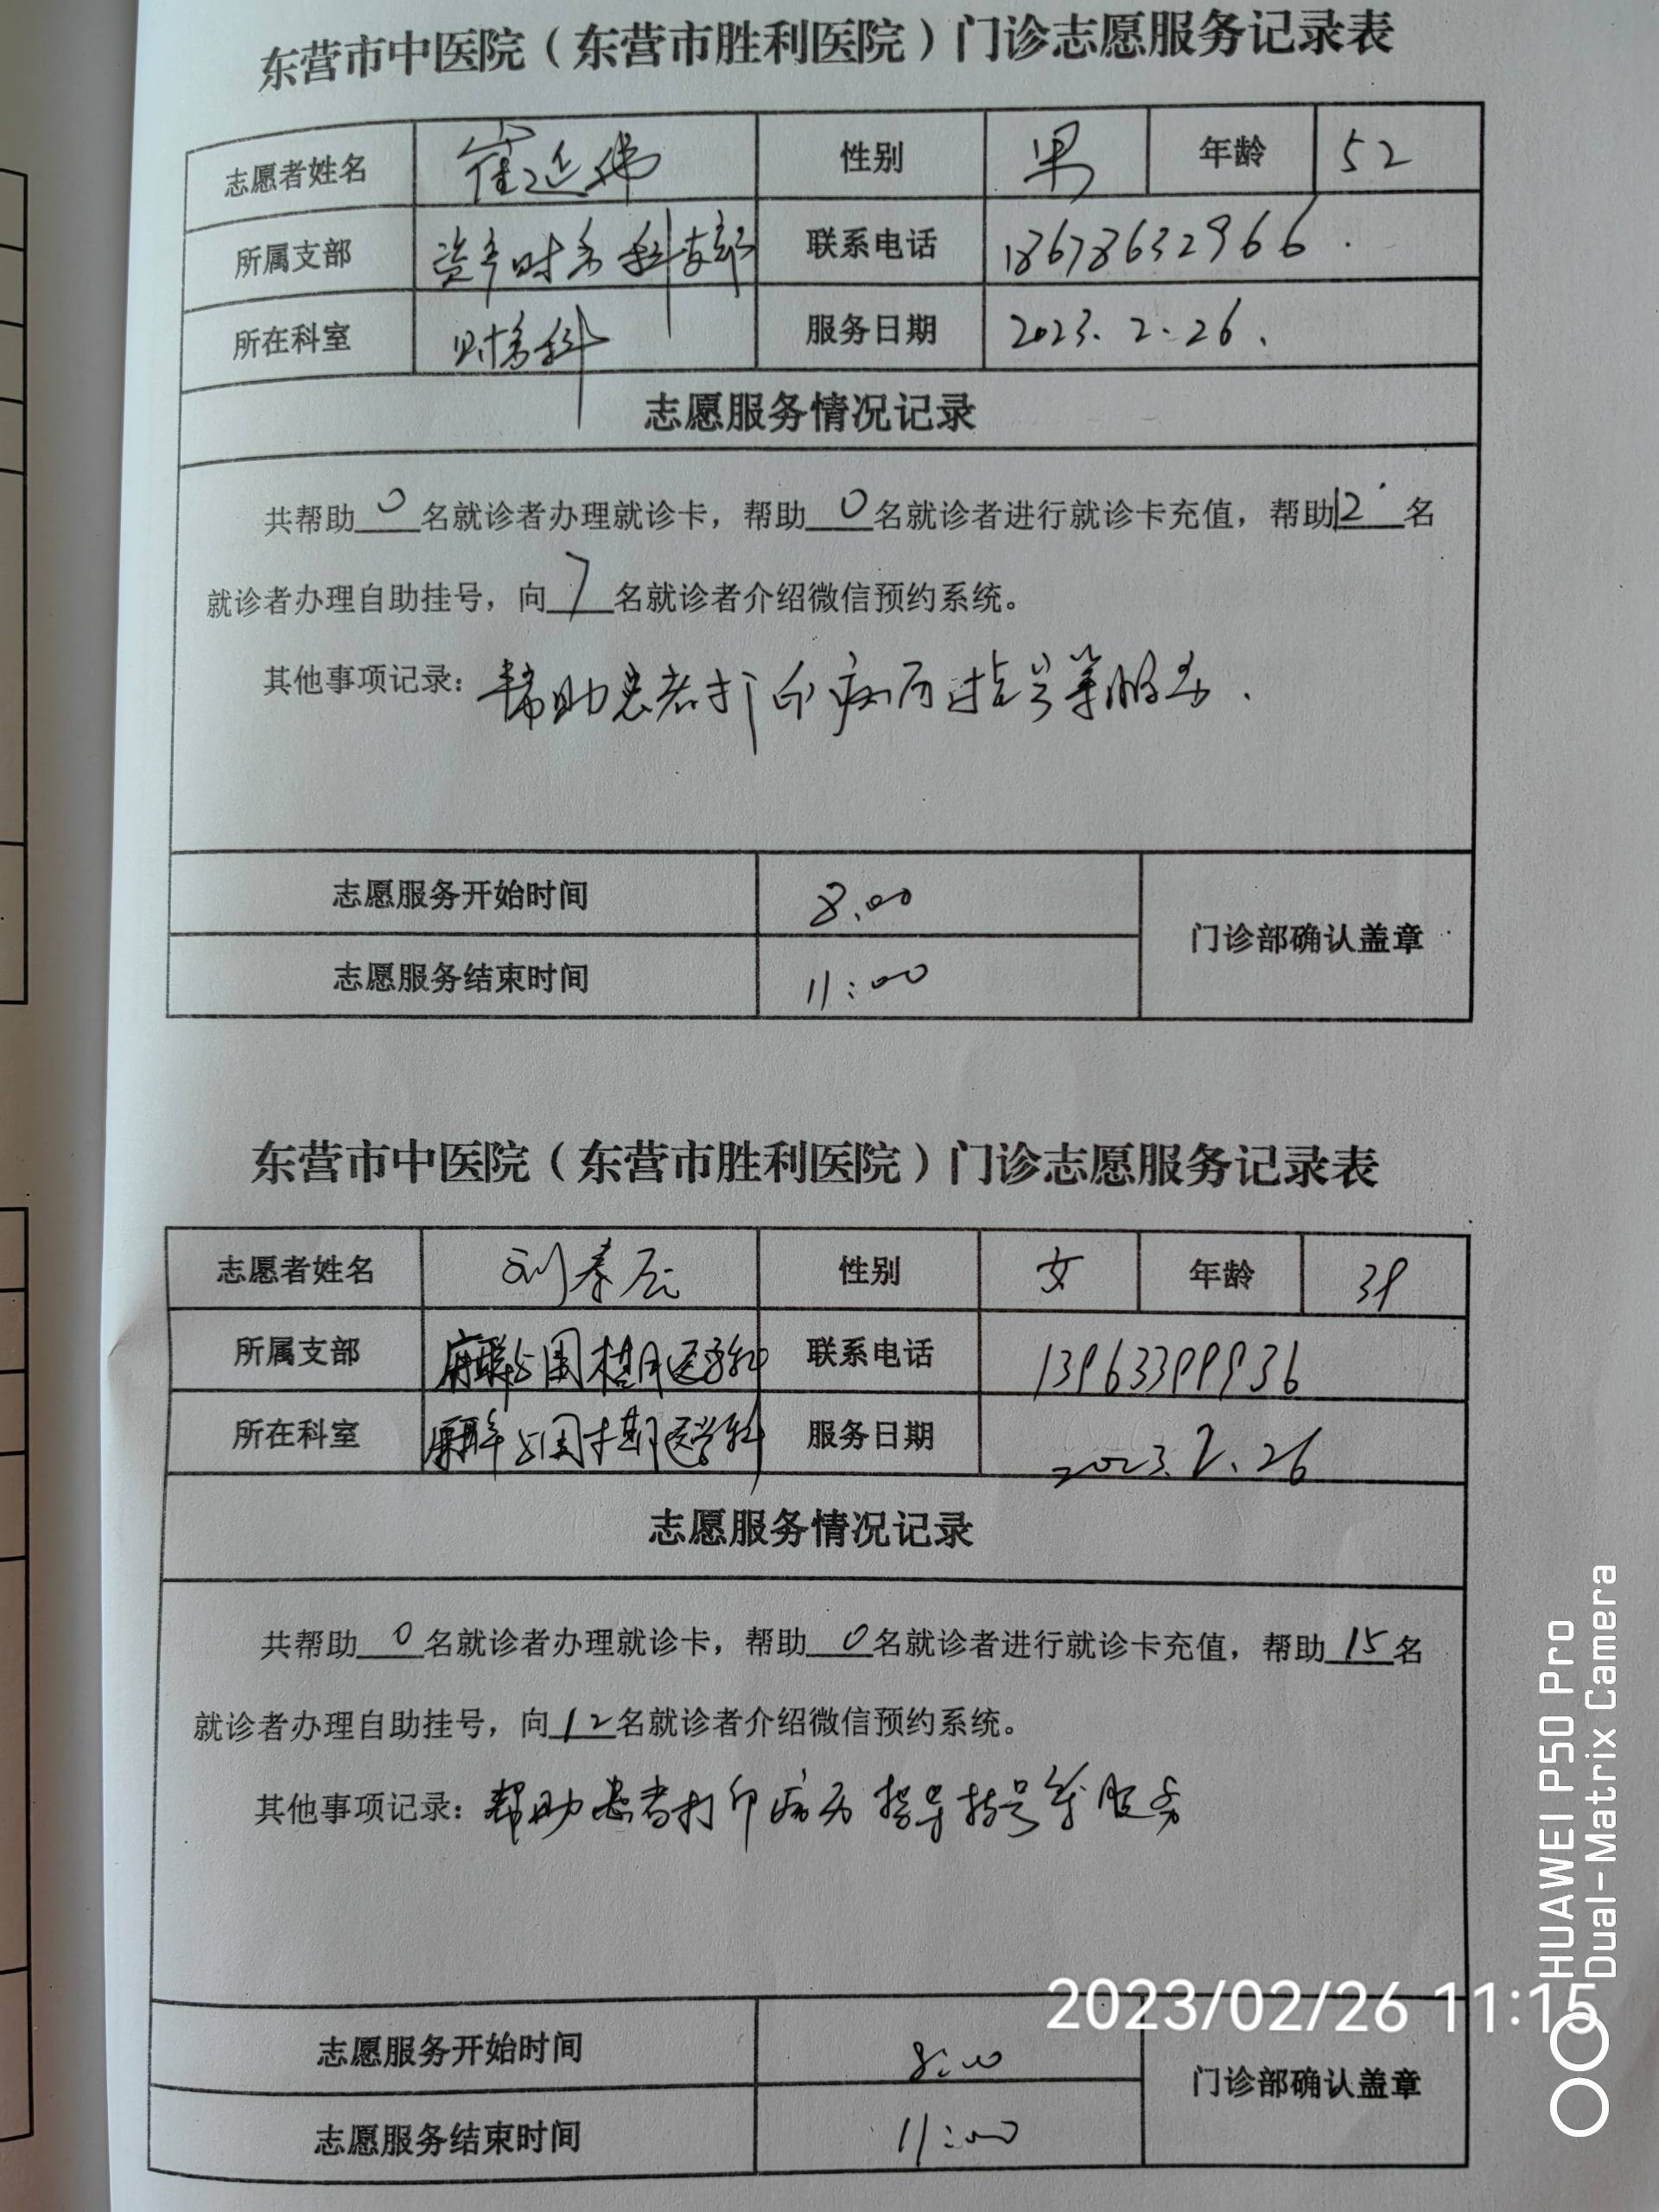 东营市中医院（东营市胜利医院）门诊志愿服务记录表
志愿者姓名 崔延伟 性别 男 年龄 52
所属支部 资产财务科支部 联系电话 18678632966.
所在科室 财务科 服务日期 2023.2.26.
志愿服务情况记录
共帮助0名就诊者办理就诊卡，帮助0名就诊者进行就诊卡充值，帮助12名
就诊者办理自助挂号，向7名就诊者介绍微信预约系统。
其他事项记录：帮助患者打印病历挂号等服务.
志愿服务开始时间 8.00
门诊部确认盖章
志愿服务结束时间 11:00
东营市中医院（东营市胜利医院）门诊志愿服务记录表
志愿者姓名 刘春 性别 女 年龄 39
所属支部 麻醉与围术期医学科 联系电话 13963399936
所在科室 麻醉与围术期医学科 服务日期 2023.2.26
志愿服务情况记录
共帮助0名就诊者办理就诊卡，帮助0名就诊者进行就诊卡充值，帮助15名
就诊者办理自助挂号，向12名就诊者介绍微信预约系统。
其他事项记录：帮助患者打印病历指导挂号等服务
志愿服务开始时间 8:00
门诊部确认盖章
志愿服务结束时间 11:00
2023/02/26 11:15
HUAWEI P50 Pro
Dual-Matrix Camera